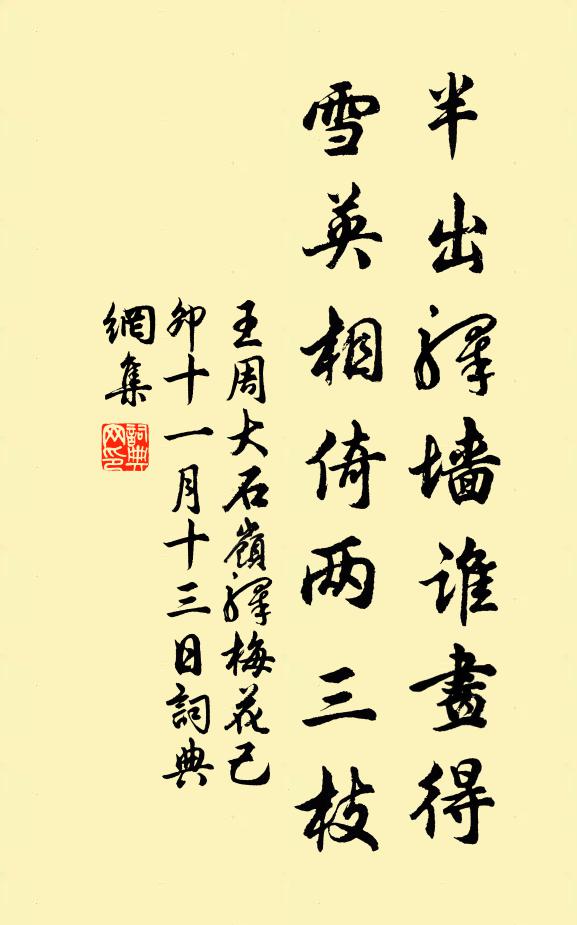 半出驛墙谁畫得
雪英相倚两三枝
王周大石嶺驛梅花己
卯十一月十三日詞典
網集
詞典
网印